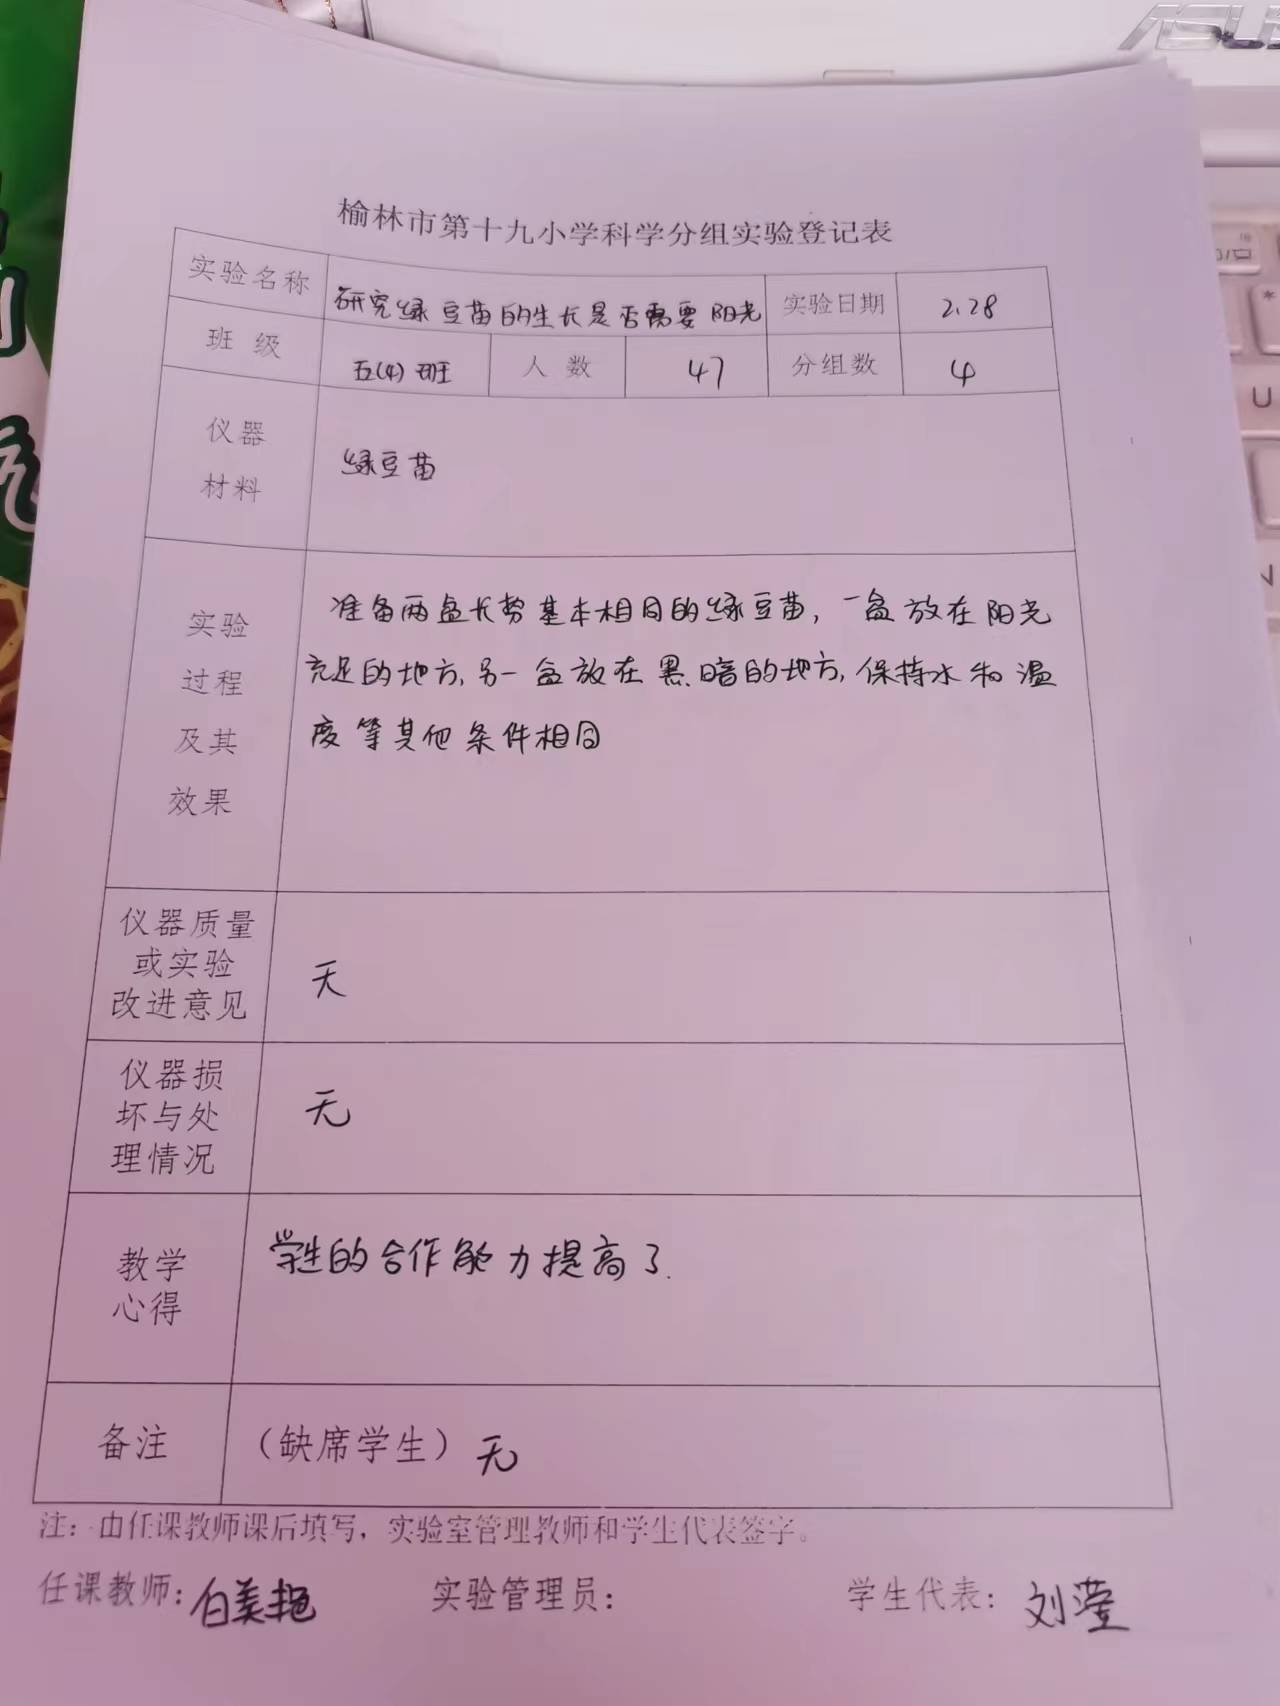 ASUS
榆林市第十九小学科学分组实验登记表
实验名称 研究绿豆苗的生长是否需要阳光 实验日期 2.28
班 级 五(4)班 人 数 47 分组数 4
仪器
材料
绿豆苗
实验
过程
及其
效果
准备两盆长势基本相同的绿豆苗,一盆放在阳光
充足的地方,另一盆放在黑暗的地方,保持水和温
度等其他条件相同
仪器质量
或实验
改进意见
无
仪器损
坏与处
理情况
无
教学
心得
学生的合作能力提高了.
备注 (缺席学生) 无
注:由任课教师课后填写,实验室管理教师和学生代表签字。
任课教师:白美艳 实验管理员: 学生代表:刘滢
U
N